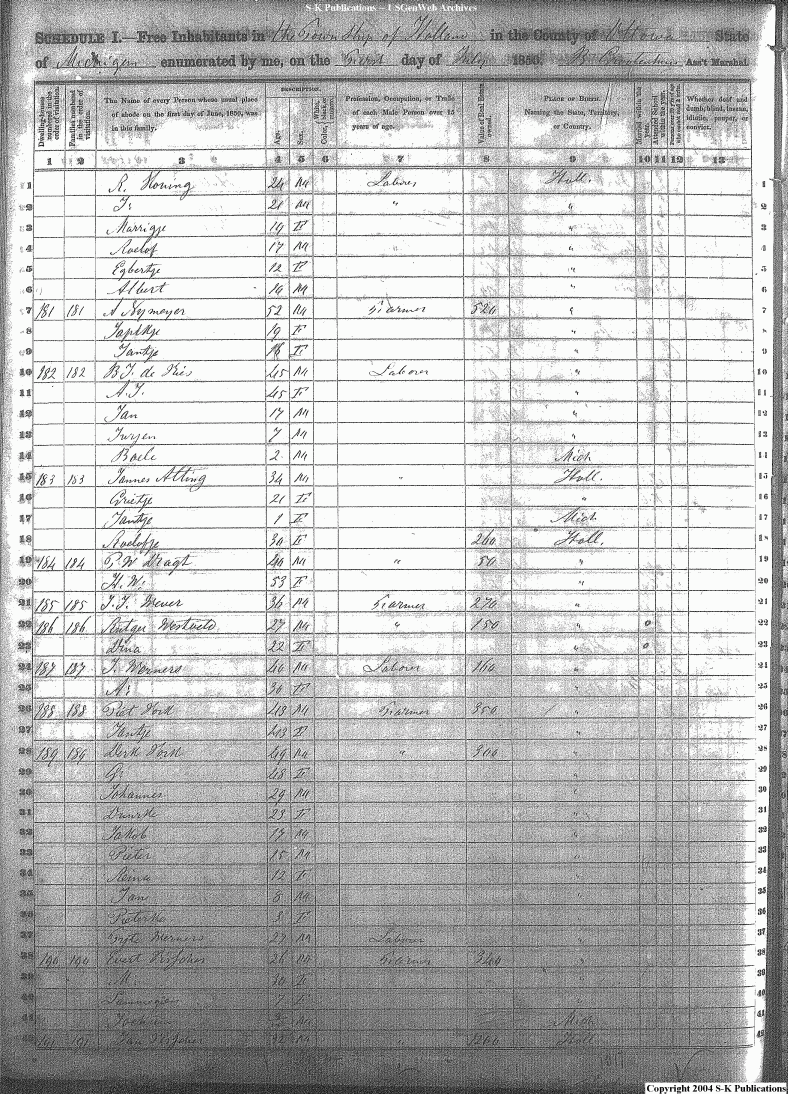 S-K Publications – USGenWeb Archives
SCHEDULE I.—Free Inhabitants in the Township of Holland in the County of Ottowa State
of Michigan enumerated by me, on the First day of July 1850. Ass't Marshal.
Dwelling-houses numbered in the order of visitation.
Families numbered in the order of visitation.
The Name of every Person whose usual place of abode on the first day of June, 1850, was in this family.
DESCRIPTION.
Age.
Sex.
Color, White, black, or mulatto.
Profession, Occupation, or Trade of each Male Person over 15 years of age.
Value of Real Estate owned.
PLACE OF BIRTH. Naming the State, Territory, or Country.
Married within the year.
Attended School within the year.
Whether deaf and dumb, blind, insane, idiotic, pauper, or convict.
1 2 3 4 5 6 7 8 9 10 11 12 13
1 R. Koning 24 M Laborer Holl. 1
2 J. 21 M " " 2
3 Marrigje 19 F " 3
4 Roelof 17 M " " 4
5 Egbertje 12 F " 5
6 Albert 10 M " 6
7 181 181 A Nymeyer 52 M Farmer 520 " 7
8 19 F " 8
9 Jantje F " 9
10 182 182 B J. de Vries 45 M Laborer " 10
11 A. J. 45 F " 11
12 Jan 17 M " 12
13 Juryen 7 M " 13
14 Boele 2 M Mich 14
15 183 183 Jannes Alting 34 M " Holl. 15
16 Grietje 21 F " 16
17 Jantje 1 F Mich 17
18 Roelofje 30 F 260 Holl. 18
19 184 184 Dragt 40 M " 50 " 19
20 H. W. 53 F " 20
21 185 185 J. J. Meuer 36 M Farmer 270 " 21
22 186 186 Rutger Westveld 27 M " 150 " 22
23 Dina 22 F " 23
24 187 187 J. Werners 40 M Laborer 160 " 24
25 A. 30 F " 25
26 188 188 Piet Vork 43 M Farmer 350 " 26
27 Jantje 43 F " 27
28 189 189 Derk Vork 49 M " 300 " 28
29 G. 48 F " 29
30 Johannes 29 M " 30
31 23 F " 31
32 Jakob 17 M " 32
33 Pieter 15 M " 33
34 12 F " 34
35 Jan 8 M " 35
36 Pieterke 3 F " 36
37 Werners 27 M Laborer " 37
38 190 190 Evert 26 M Farmer 340 " 38
39 M. F " 39
40 7 F " 40
41 M Mich 41
42 191 191 Jan M " 1200 Holl. 42
Copyright 2004 S-K Publications